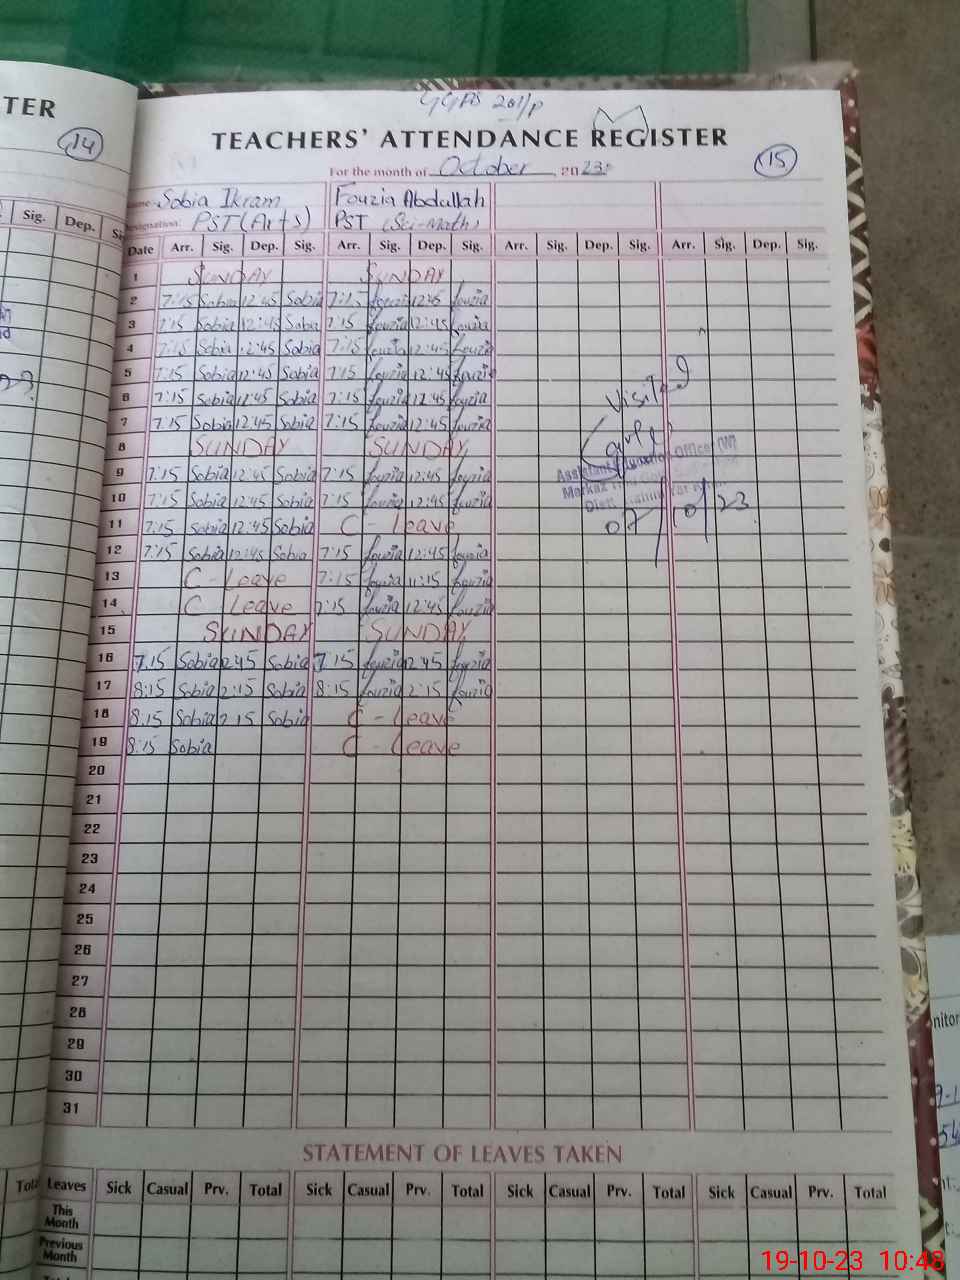 TER
14
Sig. Dep. Si
GGPS 201/P
TEACHERS' ATTENDANCE REGISTER
For the month of October 2023
15
Name Sobia Ikram Fouzia Abdullah
Designation: PST (Arts) PST (Sci-Math)
Date Arr. Sig. Dep. Sig. Arr. Sig. Dep. Sig. Arr. Sig. Dep. Sig. Arr. Sig. Dep. Sig.
1 SUNDAY SUNDAY
2 7:15 Sobia 12:45 Sobia 7:15 fouzia 12:45 fouzia
3 7:15 Sobia 12:45 Sobia 7:15 fouzia 12:45 fouzia
4 7:15 Sobia 12:45 Sobia 7:15 fouzia 12:45 fouzia
5 7:15 Sobia 12:45 Sobia 7:15 fouzia 12:45 fouzia
6 7:15 Sobia 12:45 Sobia 7:15 fouzia 12:45 fouzia
7 7:15 Sobia 12:45 Sobia 7:15 fouzia 12:45 fouzia
8 SUNDAY SUNDAY
9 7:15 Sobia 12:45 Sobia 7:15 fouzia 12:45 fouzia
10 7:15 Sobia 12:45 Sobia 7:15 fouzia 12:45 fouzia
11 7:15 Sobia 12:45 Sobia C - Leave
12 7:15 Sobia 12:45 Sobia 7:15 fouzia 12:45 fouzia
13 C - Leave 7:15 fouzia 11:15 fouzia
14 C - Leave 7:15 fouzia 12:45 fouzia
15 SUNDAY SUNDAY
16 7:15 Sobia 12:45 Sobia 7:15 fouzia 12:45 fouzia
17 8:15 Sobia 2:15 Sobia 8:15 fouzia 2:15 fouzia
18 8:15 Sobia 2:15 Sobia C - Leave
19 8:15 Sobia C - Leave
20
21
22
23
24
25
26
27
28
29
30
31
Visited
Assistant Education Officer (W)
Markaz
Distt.
07/10/23
STATEMENT OF LEAVES TAKEN
Total Leaves Sick Casual Prv. Total Sick Casual Prv. Total Sick Casual Prv. Total Sick Casual Prv. Total
This Month
Previous Month
nitor
19-10-23 10:48